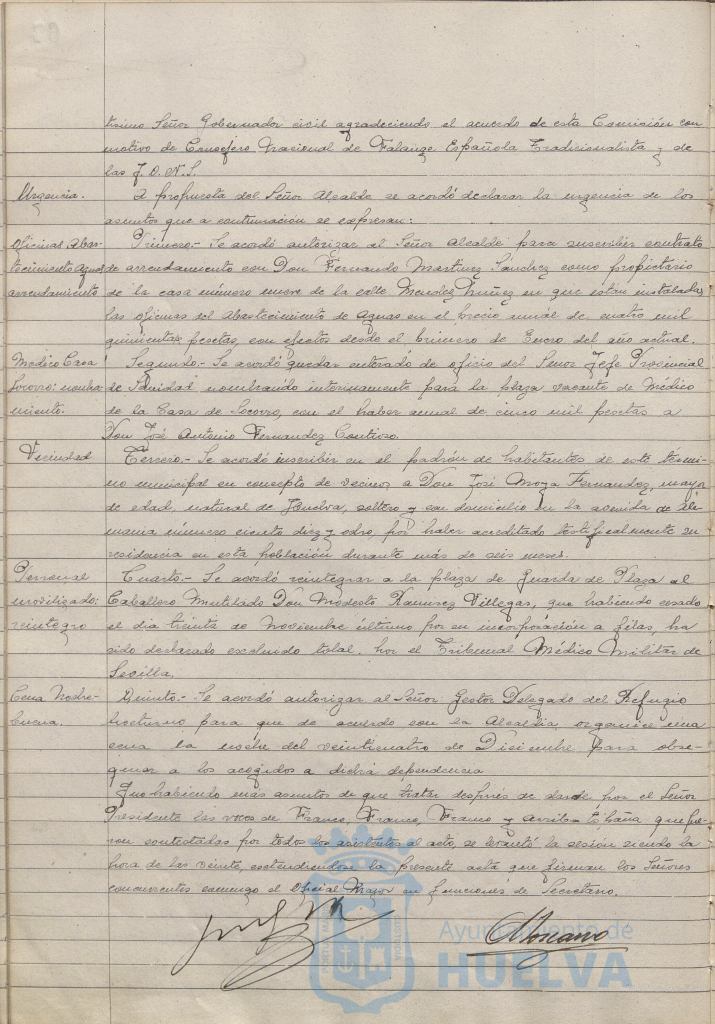 tísimo Señor Gobernador civil agradeciendo el acuerdo de esta Comisión con
motivo de Consejero Nacional de Falange Española Tradicionalista y de
las J.O.N.S.
Urgencia. A propuesta del Señor Alcalde se acordó declarar la urgencia de los
asuntos que a continuación se expresan:
Oficinas Abas- Primero.- Se acordó autorizar al Señor Alcalde para suscribir contrato
tecimiento Aguas de arrendamiento con Don Fernando Martinez Sánchez como propietario
arrendamiento de la casa número nueve de la calle Mendez Nuñez en que estan instaladas
las oficinas del Abastecimiento de Aguas en el precio anual de cuatro mil
quinientas pesetas, con efectos desde el primero de Enero del año actual.
Médico Casa Segundo.- Se acordó quedar enterado de oficio del Señor Jefe Provincial
Socorro: nombra- de Sanidad nombrando interinamente para la plaza vacante de Médico
miento. de la Casa de Socorro, con el haber anual de cinco mil pesetas a
Don José Antonio Fernandez Contioso.
Vecindad Tercero.- Se acordó inscribir en el padrón de habitantes de este térmi-
no municipal en concepto de vecino, a Don José Moya Fernandez, mayor
de edad, natural de Huelva, soltero y con domicilio en la avenida de Ale-
mania número ciento diez y ocho, por haber acreditado testificalmente su
residencia en esta población durante más de seis meses.
Personal Cuarto.- Se acordó reintegrar a la plaza de Guarda de Plaza al
movilizado: Caballero Mutilado Don Modesto Ramirez Villegas, que habiendo cesado
reintegro el dia treinta de Noviembre último por su incorporación a filas, ha
sido declarado excluido total, por el Tribunal Médico Militar de
Sevilla.
Cena Noche- Quinto.- Se acordó autorizar al Señor Gestor Delegado del Refugio
buena. nocturno para que de acuerdo con la Alcaldia, organice una
cena la noche del veinticuatro de Diciembre para obse-
quiar a los acogidos a dicha dependencia
Y no habiendo más asuntos de que tratar después de darse por el Señor
Presidente las voces de Franco, Franco, Franco y Arriba España que fue-
ron contestadas por todos los asistentes al acto, se levantó la sesión siendo la
hora de las veinte, extendiendose la presente acta que firman los Señores
concurrentes conmigo el Oficial Mayor en funciones de Secretario.
Ayuntamiento de
HUELVA